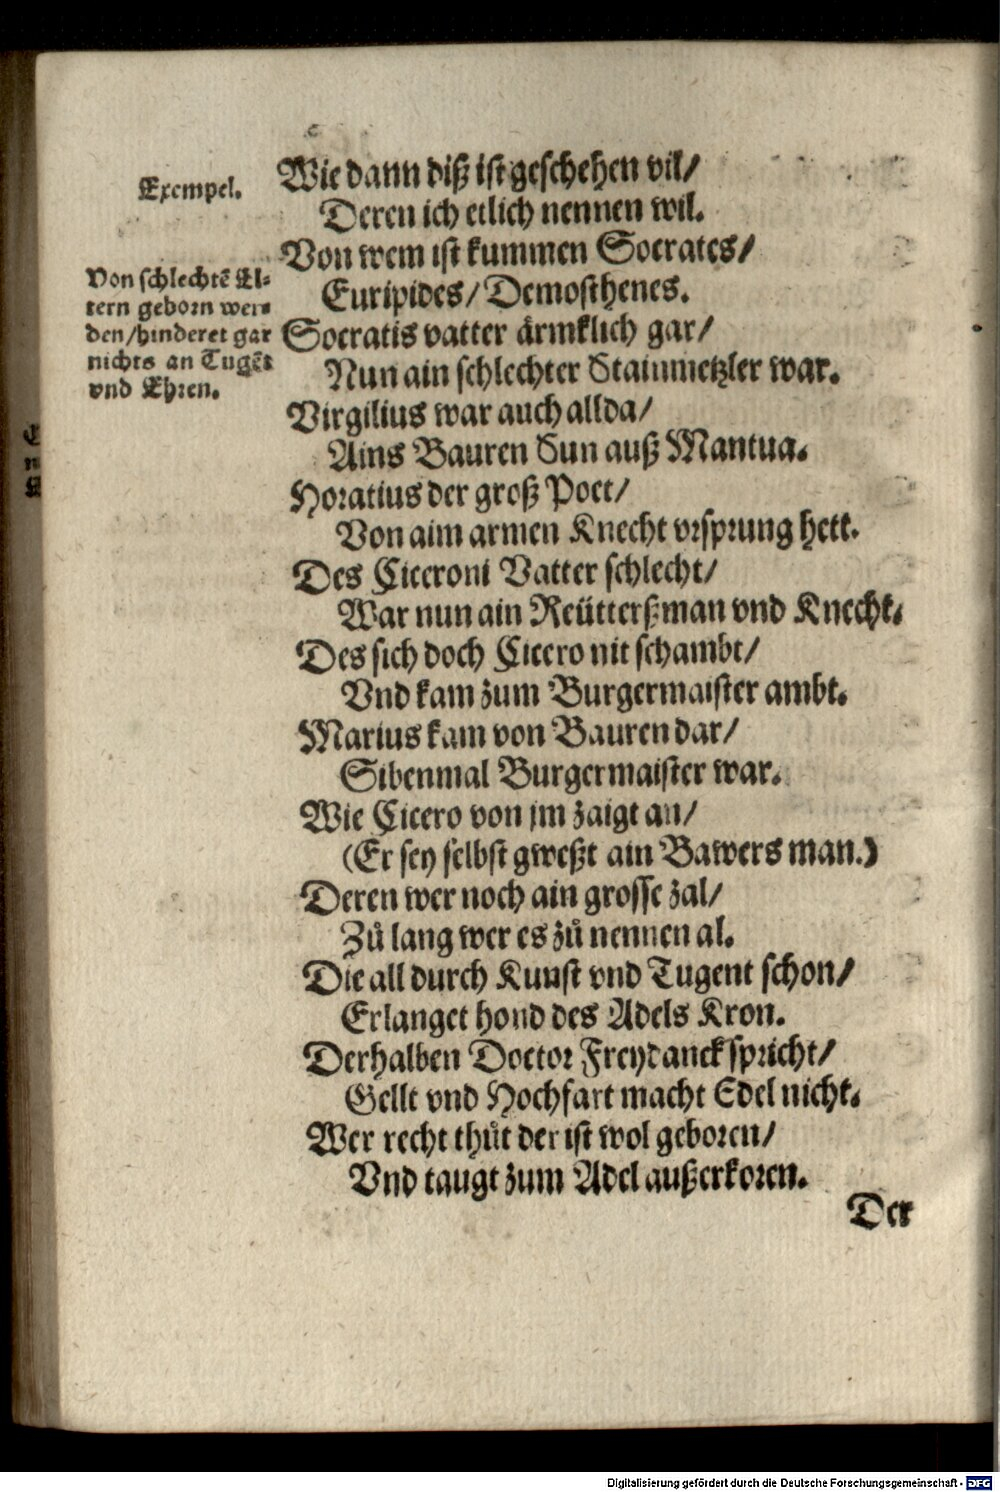 Exempel.
Von schlechtē El-
tern geborn wer-
den/hinderet gar
nichts an Tugēt
vnd Ehren.
Wie dann diß ist geschehen vil/
Deren ich etlich nennen wil.
Von wem ist kummen Socrates/
Euripides/Demosthenes.
Socratis vatter ärmklich gar/
Nun ain schlechter Stainmetzler war.
Virgilius war auch allda/
Ains Bauren Sun auß Mantua.
Horatius der groß Poet/
Von aim armen Knecht vrsprung hett.
Des Ciceroni Vatter schlecht/
War nun ain Reütterßman vnd Knecht.
Des sich doch Cicero nit schambt/
Vnd kam zum Burgermaister ambt.
Marius kam von Bauren dar/
Sibenmal Burgermaister war.
Wie Cicero von jm zaigt an/
(Er sey selbst gweßt ain Bawers man.)
Deren wer noch ain grosse zal/
Zů lang wer es zů nennen al.
Die all durch Kunst vnd Tugent schon/
Erlanget hond des Adels Kron.
Derhalben Doctor Freydanck spricht/
Gellt vnd Hochfart macht Edel nicht.
Wer recht thůt der ist wol geboren/
Vnd taugt zum Adel außerkoren.
Der
Digitalisierung gefördert durch die Deutsche Forschungsgemeinschaft - DFG